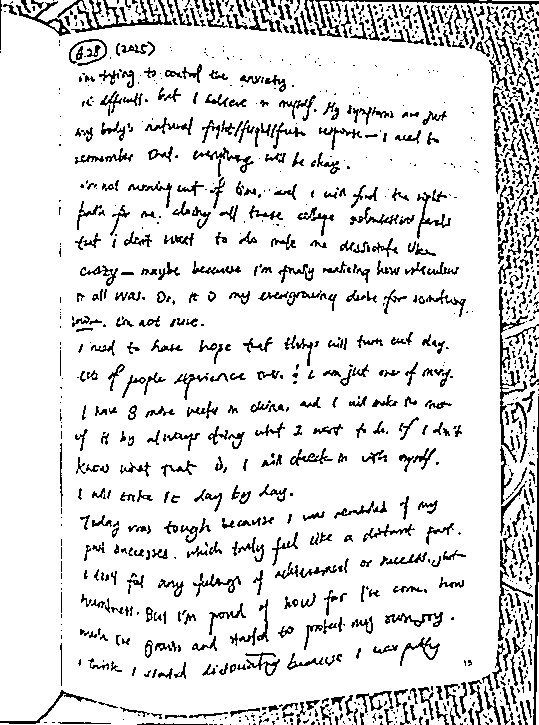 6.28 (2025)
i'm trying to control the anxiety.
it difficult. but I believe in myself. My symptoms are just
my body's natural fight/flight/freeze response — I need to
remember that. everything will be okay.
i'm not running out of time, and I will find the right
path for me. doing all these college admissions panels
that i don't want to do make me dissociate like
crazy — maybe because I'm finally realizing how ridiculous
it all was. Or, it is my evergrowing desire for something
more. I'm not sure.
I need to have hope that things will turn out okay.
lots of people experience this & I am just one of many.
I have 8 more weeks in China, and I will make the most
of it by always doing what I want to do. If I don't
know what that is, I will check in with myself.
I will take it day by day.
Today was tough because I was reminded of my
past successes. which truly feel like a distant past.
I don't feel any feelings of achievement or success, just
numbness. But I'm proud of how far I've come. how
much I've grown and started to protect my own joy.
I think I started dissociating because I was
13